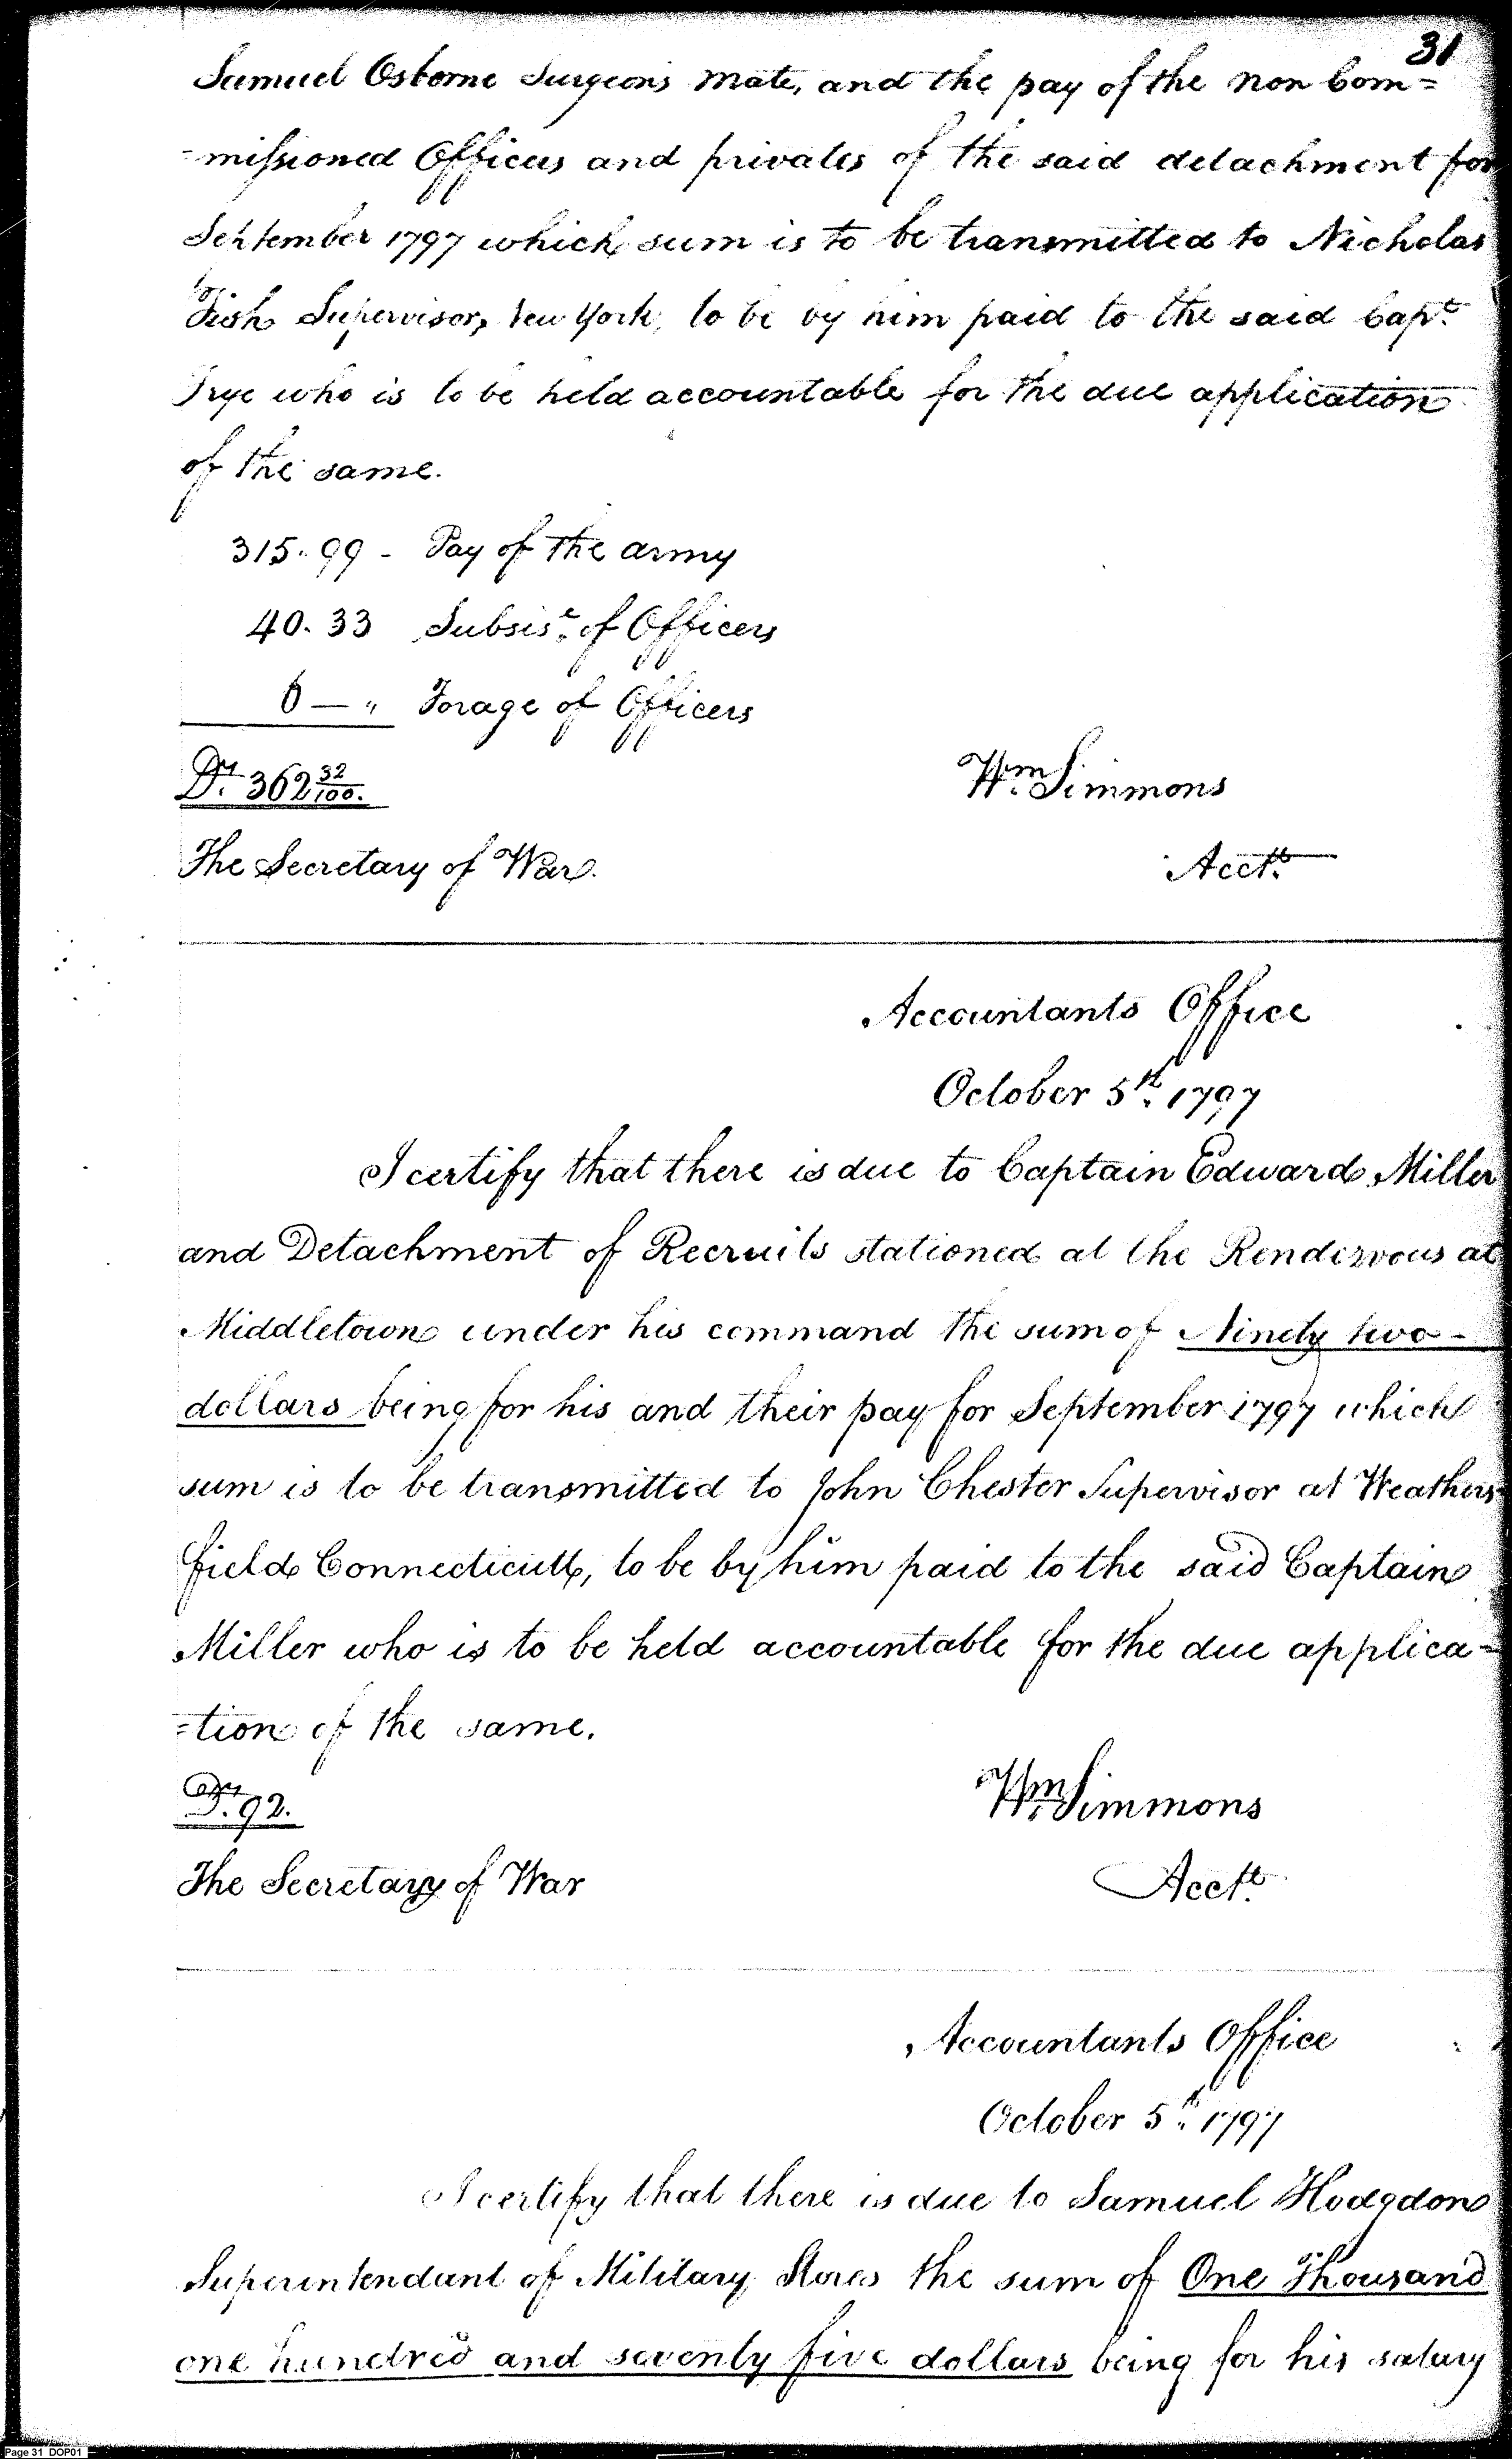 31
Samuel Osborne Surgeons Mate, and the pay of the non Com=
=missioned Officers and privates of the said detachment for
September 1797 which sum is to be transmitted to Nicholas
Fish Supervisor, New York, to be by him paid to the said Capt.
Frye who is to be held accountable for the due application
of the same.
315.99 - Pay of the army
40.33 Subsis.e of Officers
6 — " Forage of Officers
Drs. 362 32/100.
Wm. Simmons
The Secretary of War.
Acctt.
Accountants Office
October 5th. 1797
I certify that there is due to Captain Edward Miller
and Detachment of Recruits stationed at the Rendezvous at
Middletown under his command the sum of Ninety two -
dollars being for his and their pay for September 1797 which
sum is to be transmitted to John Chester Supervisor at Weathers-
field Connecticutt, to be by him paid to the said Captain
Miller who is to be held accountable for the due applica=
=tion of the same.
Drs. 92.
Wm. Simmons
The Secretary of War
Acctt.
Accountants Office
October 5th. 1797
I certify that there is due to Samuel Hodgdon
Superintendant of Military Stores the sum of One Thousand
one hundred and seventy five dollars being for his salary
Page 31 DOP01